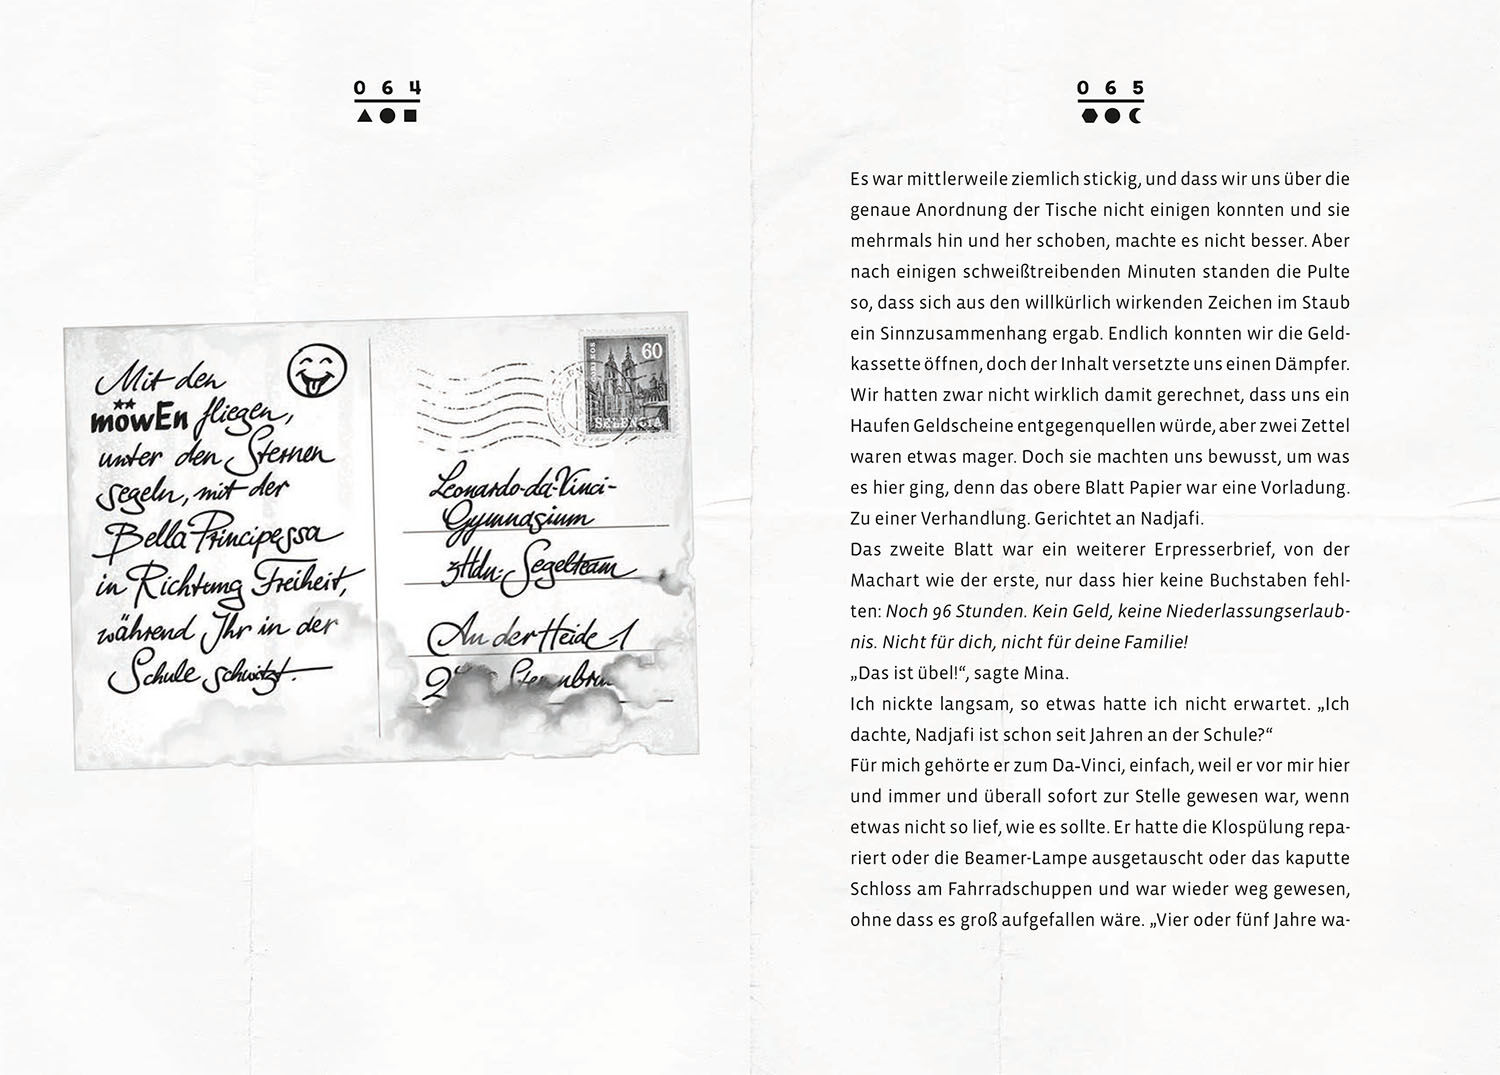 064
Mit den
möwEn fliegen,
unter den Sternen
segeln, mit der
Bella Principessa
in Richtung Freiheit,
während Ihr in der
Schule schwitzt.
60
SELENCIA
Leonardo-da-Vinci-
Gymnasium
zHdn. Segelteam
An der Heide 1
065
Es war mittlerweile ziemlich stickig, und dass wir uns über die
genaue Anordnung der Tische nicht einigen konnten und sie
mehrmals hin und her schoben, machte es nicht besser. Aber
nach einigen schweißtreibenden Minuten standen die Pulte
so, dass sich aus den willkürlich wirkenden Zeichen im Staub
ein Sinnzusammenhang ergab. Endlich konnten wir die Geld-
kassette öffnen, doch der Inhalt versetzte uns einen Dämpfer.
Wir hatten zwar nicht wirklich damit gerechnet, dass uns ein
Haufen Geldscheine entgegenquellen würde, aber zwei Zettel
waren etwas mager. Doch sie machten uns bewusst, um was
es hier ging, denn das obere Blatt Papier war eine Vorladung.
Zu einer Verhandlung. Gerichtet an Nadjafi.
Das zweite Blatt war ein weiterer Erpresserbrief, von der
Machart wie der erste, nur dass hier keine Buchstaben fehl-
ten: Noch 96 Stunden. Kein Geld, keine Niederlassungserlaub-
nis. Nicht für dich, nicht für deine Familie!
„Das ist übel!“, sagte Mina.
Ich nickte langsam, so etwas hatte ich nicht erwartet. „Ich
dachte, Nadjafi ist schon seit Jahren an der Schule?“
Für mich gehörte er zum Da-Vinci, einfach, weil er vor mir hier
und immer und überall sofort zur Stelle gewesen war, wenn
etwas nicht so lief, wie es sollte. Er hatte die Klospülung repa-
riert oder die Beamer-Lampe ausgetauscht oder das kaputte
Schloss am Fahrradschuppen und war wieder weg gewesen,
ohne dass es groß aufgefallen wäre. „Vier oder fünf Jahre wa-